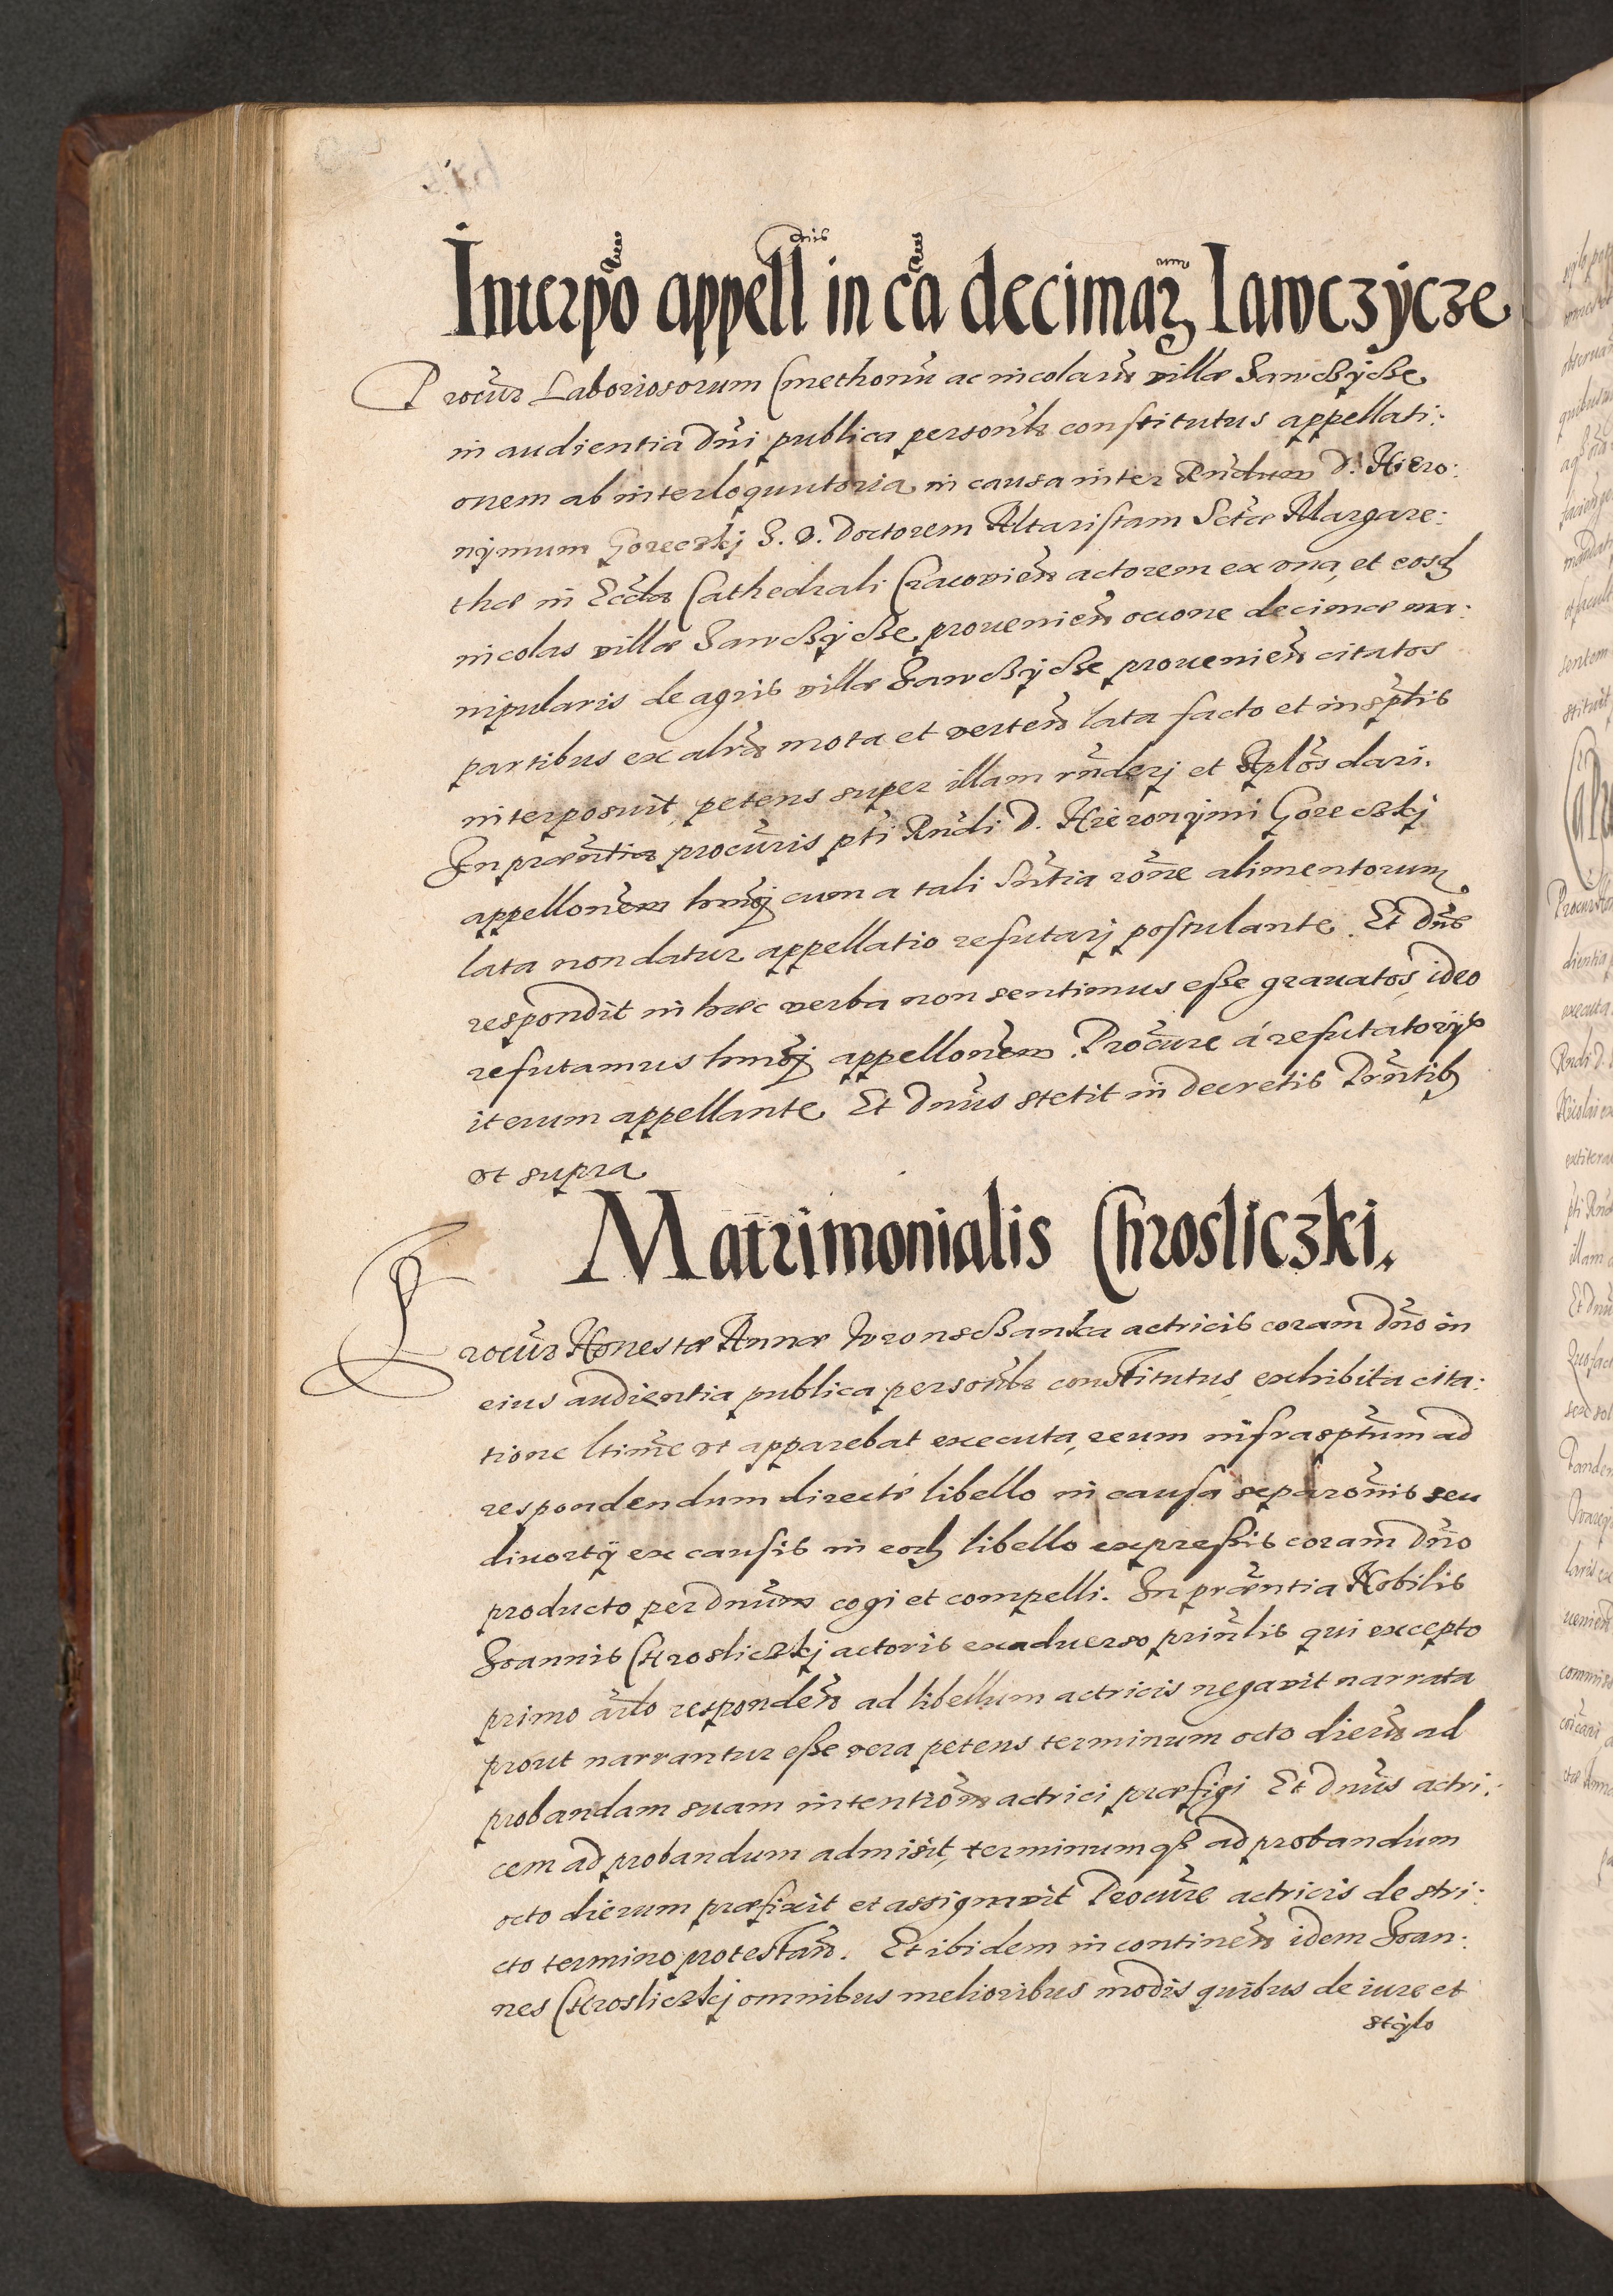 Interpo͠ appell in ca͠ decimaꝝ Iawczÿcze
Procur͠ Laboriosorum Cmethonu͠ ac incolaru͠ villæ Jawczÿcze
in audientia Dn͠i publica person͠lr constitutus appellati:
onem ab interloquutoria in causa inter Rn͠dum D. Hiero:
nÿmum Goreczkj S. D. Doctorem Altaristam S͠ctæ Margare:
thæ in Ecc͠la Cathedrali Cracovien͠ actorem ex vna, et eosꝫ
incolas villæ Jawczÿcze provenien͠ ocione decimæ ma:
nipularis de agris villæ Jawczÿcze provenien͠ citatos
partibus ex alr͠a mota et verten͠ lata facto et inspt͠is
interposuit, petens super illam rn͠derj et Apl͠os dari.
In præn͠tia procur͠is pt͠i Rn͠di D. Hieronÿmi Goreczkj
appellon͠em hm͠oj cum a tali Sn͠tia ro͠ne alimentorum
lata non datur appellatio refutarj postulante. Et Dn͠s
respondit in hæc verba non sentimus esse gravatos, ideo
refutamus hm͠oj appellon͠em. Procur͠e á refutatorÿs
iterum appellante Et Dn͠us stetit in decretis Prn͠tibꝫ
vt supra
Matrimonialis Chrosliczki.
Procur͠ Honestæ Annæ Wronsczanka actricis coram Dn͠o in
eius audientia publica person͠lr constitutus, exhibita cita:
tione l͠time vt apparebat executa, reum infraspt͠um ad
respondendum directé libello in causa separon͠is seu
divortÿ ex causis in eodꝫ libello expressis coram Dn͠o
producto per Dn͠um cogi et compelli. In præn͠tia Nobilis
Joannis Chrosliczkj actoris ex adverso prin͠lis qui excepto
primo ar͠lo responden͠ ad libellum actricis negavit narrata
prout narrantur esse vera petens terminum octo dieru͠ ad
probandam suam intention͠em actrici præfigi Et Dn͠us actri:
cem ad probandum admisit, terminumqꝫ ad probandum
octo dierum præfixit et assignavit Procur͠e actricis de stri:
cto termino protestan͠. Et ibidem in continen͠ idem Joan:
nes Chrosliczkj omnibus melioribus modis quibus de iure et
stÿlo